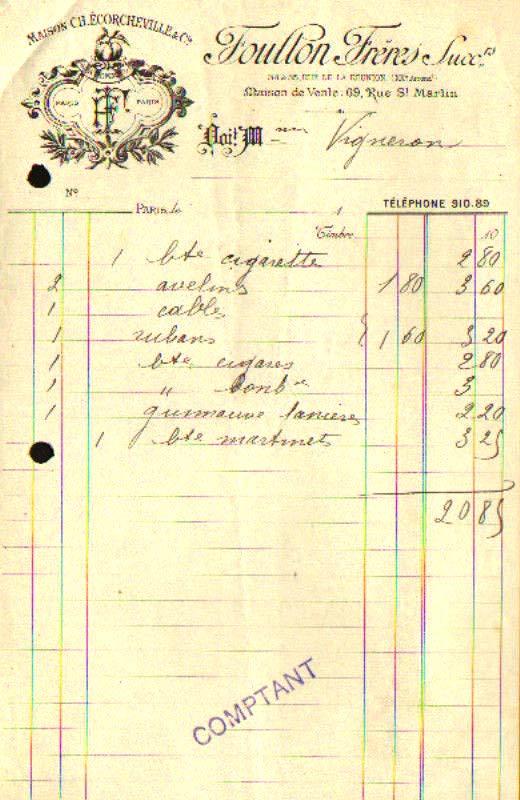 MAISON CH. ÉCORCHEVILLE & Cie
PARIS PARIS
Foullon Frères Succrs
RUE DE LA RÉUNION (XXe Arrondt)
Maison de Vente: 69, Rue St Martin
Doit M Vigneron
No
PARIS, le 1
TÉLÉPHONE 910.89
Timbre 10
1 bte cigarette 2 80
2 avelines 1 80 3 60
1 cables
1 rubans 1 60 3 20
1 bte cigares 2 80
1 " 3
1 guimauve lanières 2 20
1 bte martinets 3 25
20 85
COMPTANT